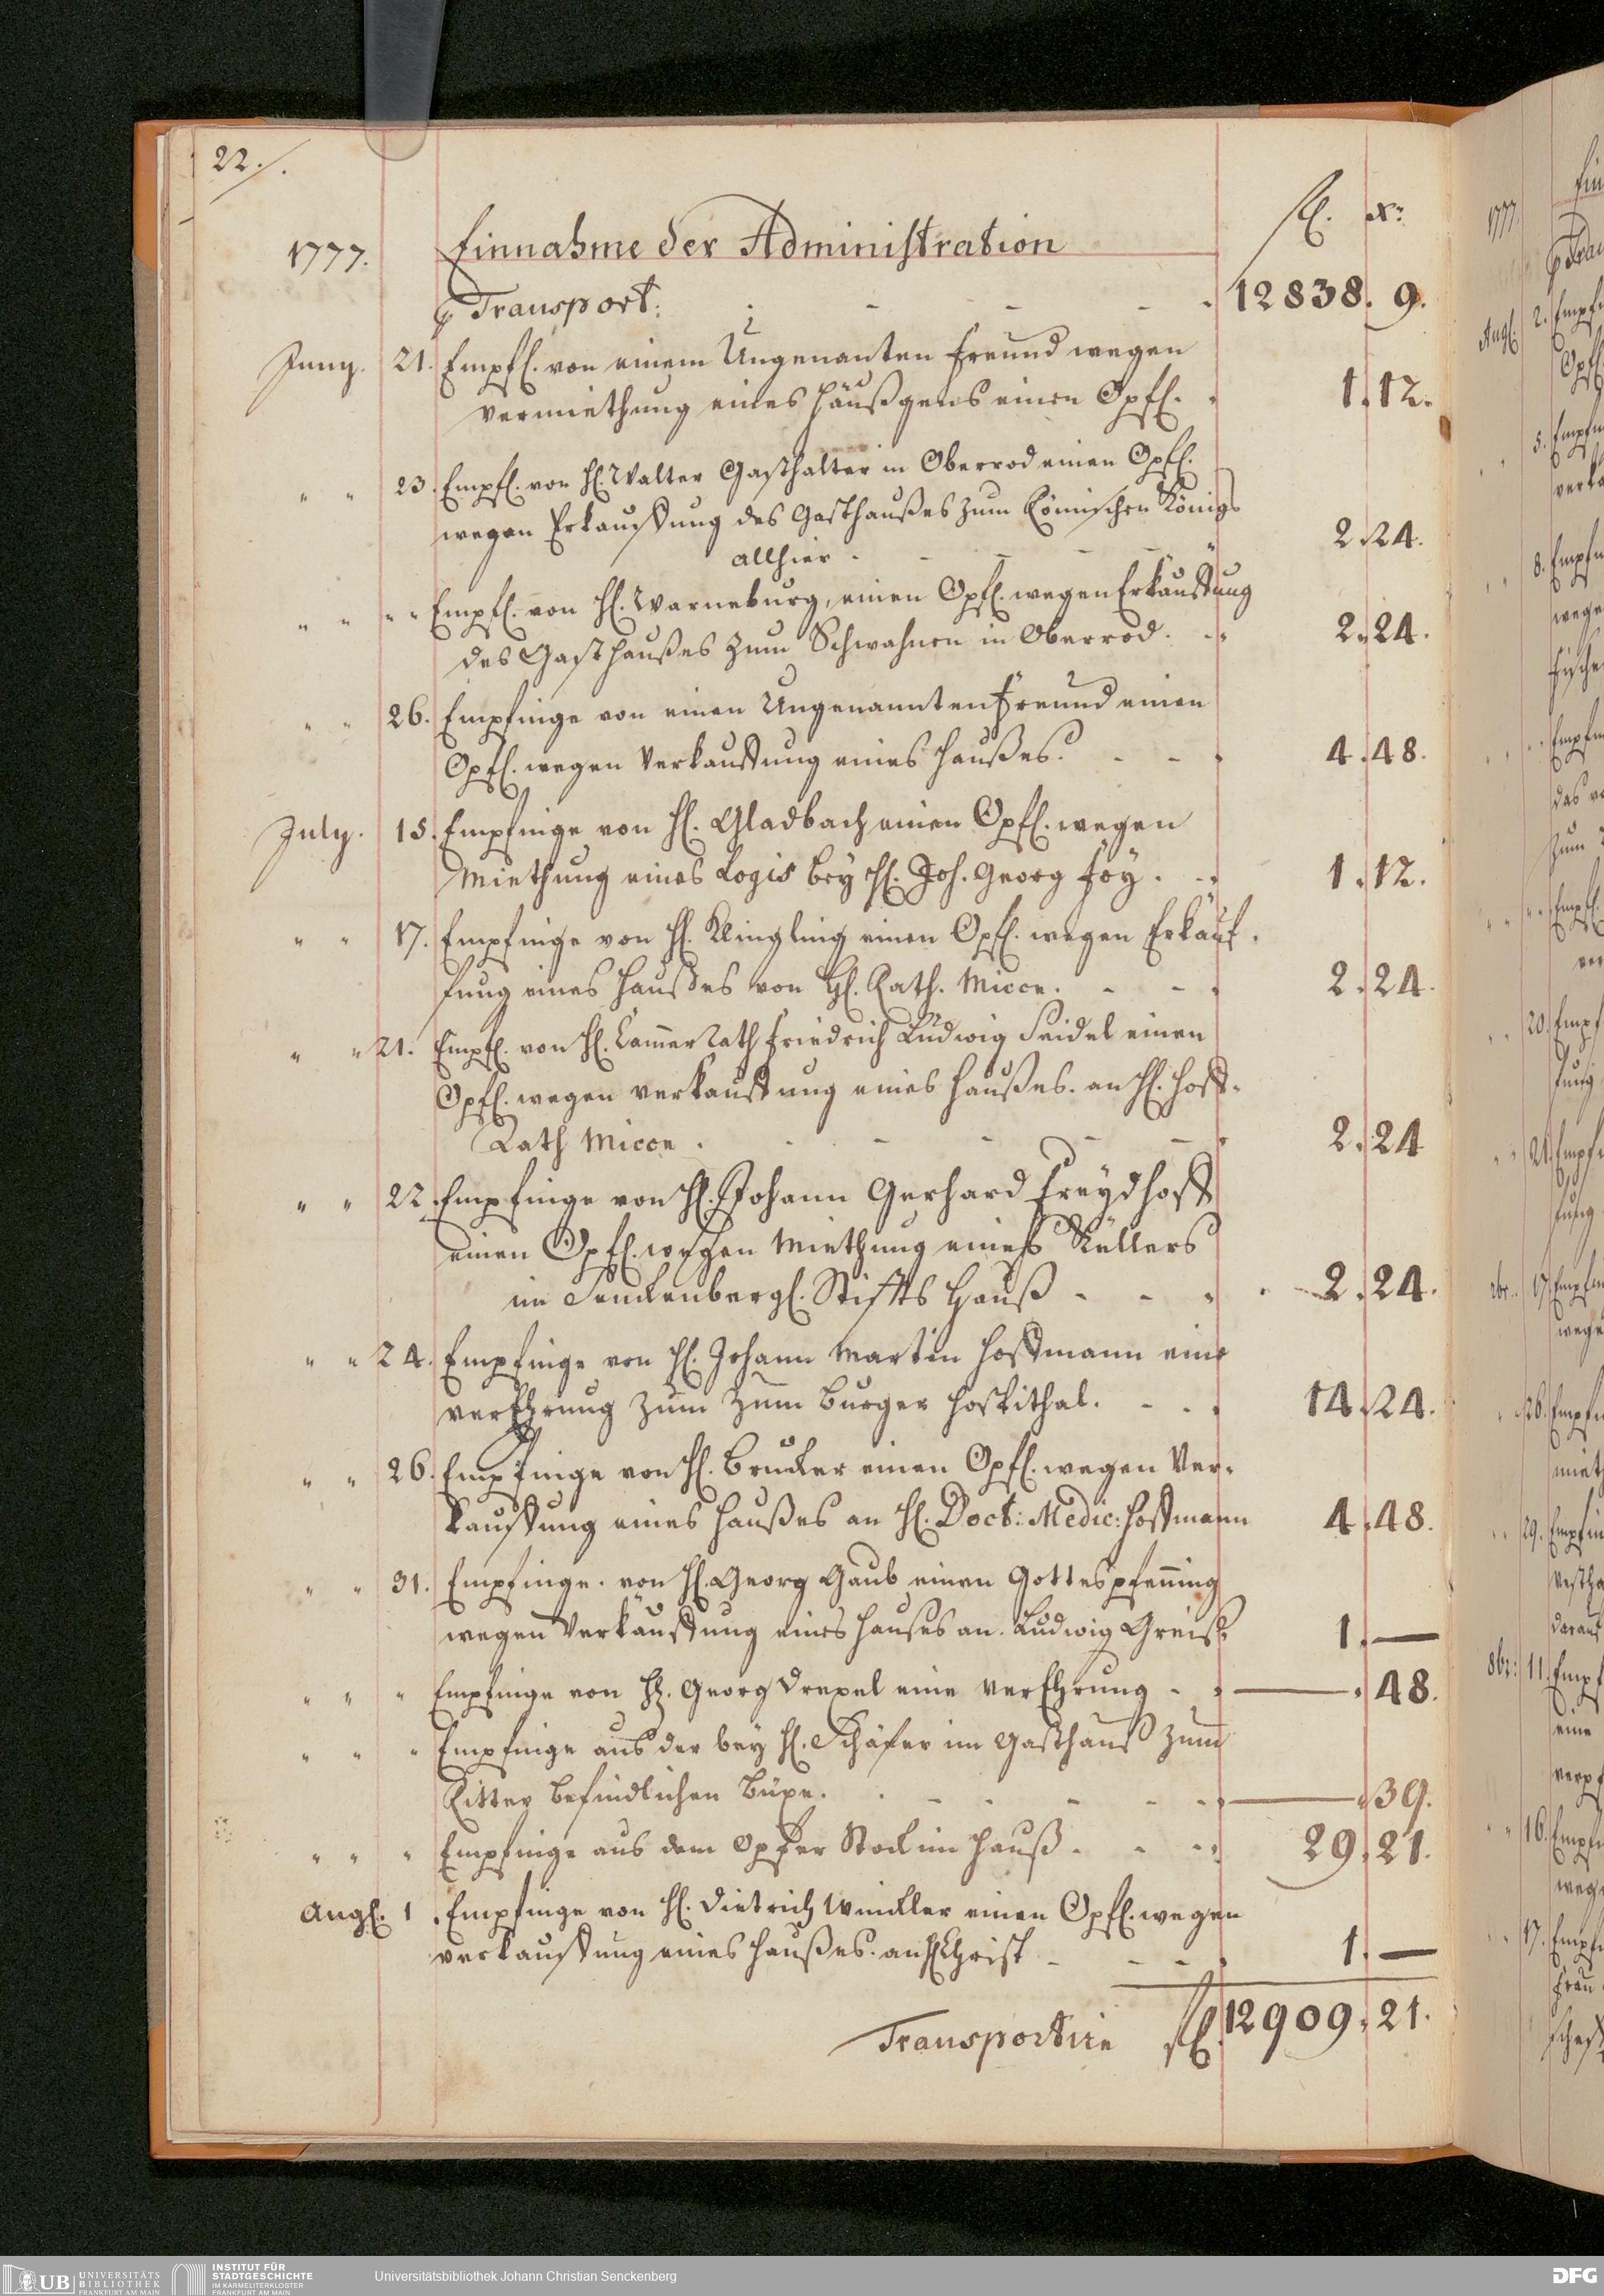 22./.
fl. xr:
1777. Einnahme der Administration
p Transport: - - - - 12838. 9.
Juny. 21. Empfl. von einem Ungenanten Freund wegen
Vermiethung eines Häußgens einen Opfl. - 1. 12.
" " 23. Empfl. von H. Walter Gasthalter in Oberrod einen Opfl.
wegen Erkauffung des Gasthaußes zum Römischen König
allhier - - - - 2. 24.
" " " " Empfl. von H. Warneburg, einen Opfl. wegen Erkauffung
des Gasthaußes zum Schwahnen in Oberrod. - - 2. 24.
" " 26. Empfinge von einen Ungenannten Freund einen
Opfl. wegen Verkauffung eines Haußes. - - - 4. 48.
July. 15. Empfinge von H. Gladbach einen Opfl. wegen
Miethung eines Logis bey H. Joh. Georg Foy. - - 1. 12.
" " 17. Empfinge von H. Klingling einen Opfl. wegen Erkauf-
fung eines Haußes von H. Rath. Micon. - - - 2. 24.
" " 21. Empfl. von H. Cammer Rath Friedrich Ludwig Seidel einen
Opfl. wegen verkauffung eines Haußes. an H. Hoff-
Rath Micon. - - - - - 2. 24
" " 22. Empfinge von H. Johann Gerhard Freydhoff
einen Opfl. wegen Miethung eines Kellers
im Senckenbergl. Stiffts Hauß - - - 2. 24.
" " 24. Empfinge von H. Johann Martin Hoffmann eine
verEhrung zum zum Burger Hospithal. - - - 14. 24.
" " 26. Empfinge von H. Brucker einen Opfl. wegen Ver-
kauffung eines Haußes an H. Doct: Medic: Hoffmann 4. 48.
" " 31. Empfinge. von H. Georg Gaub einen Gottespfennig
wegen Verkauffung eines Hauses an. Ludwig Greiß 1. —
" " " Empfinge von H. Georg Drexel eine verEhrung - - — . 48.
" " " Empfinge aus der bey H. Schäfer im Gasthauß zum
Ritter befindlichen Büxe. - - - - - — 39.
" " " Empfinge aus dem Opfer Stock im Hauß. - - - 29. 21.
Augl. 1. Empfinge von H. Dietrich Winckler einen Opfl. wegen
verkauffung eines Haußes. an H. Christ - - - 1. —
Transportire fl. 12909. 21.
UB UNIVERSITÄTS
BIBLIOTHEK
FRANKFURT AM MAIN
INSTITUT FÜR
STADTGESCHICHTE
IM KARMELITERKLOSTER
FRANKFURT AM MAIN
Universitätsbibliothek Johann Christian Senckenberg
DFG